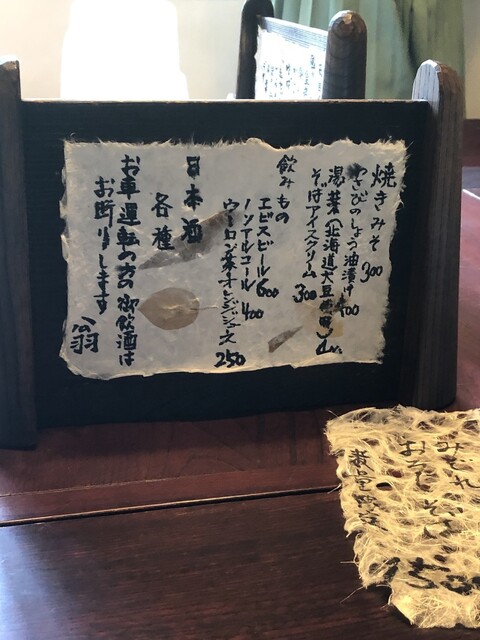 焼きみそ 300
わさびのしょう油漬け 400
湯葉(北海道大豆使用)
そばアイスクリーム 300
飲みもの
エビスビール 600
ノンアルコール 400
ウーロン茶・オレンジジュース 250
日本酒
各種
お車運転の方の御飲酒は
お断りします
翁
みぞれ
おろしそば
数量限定